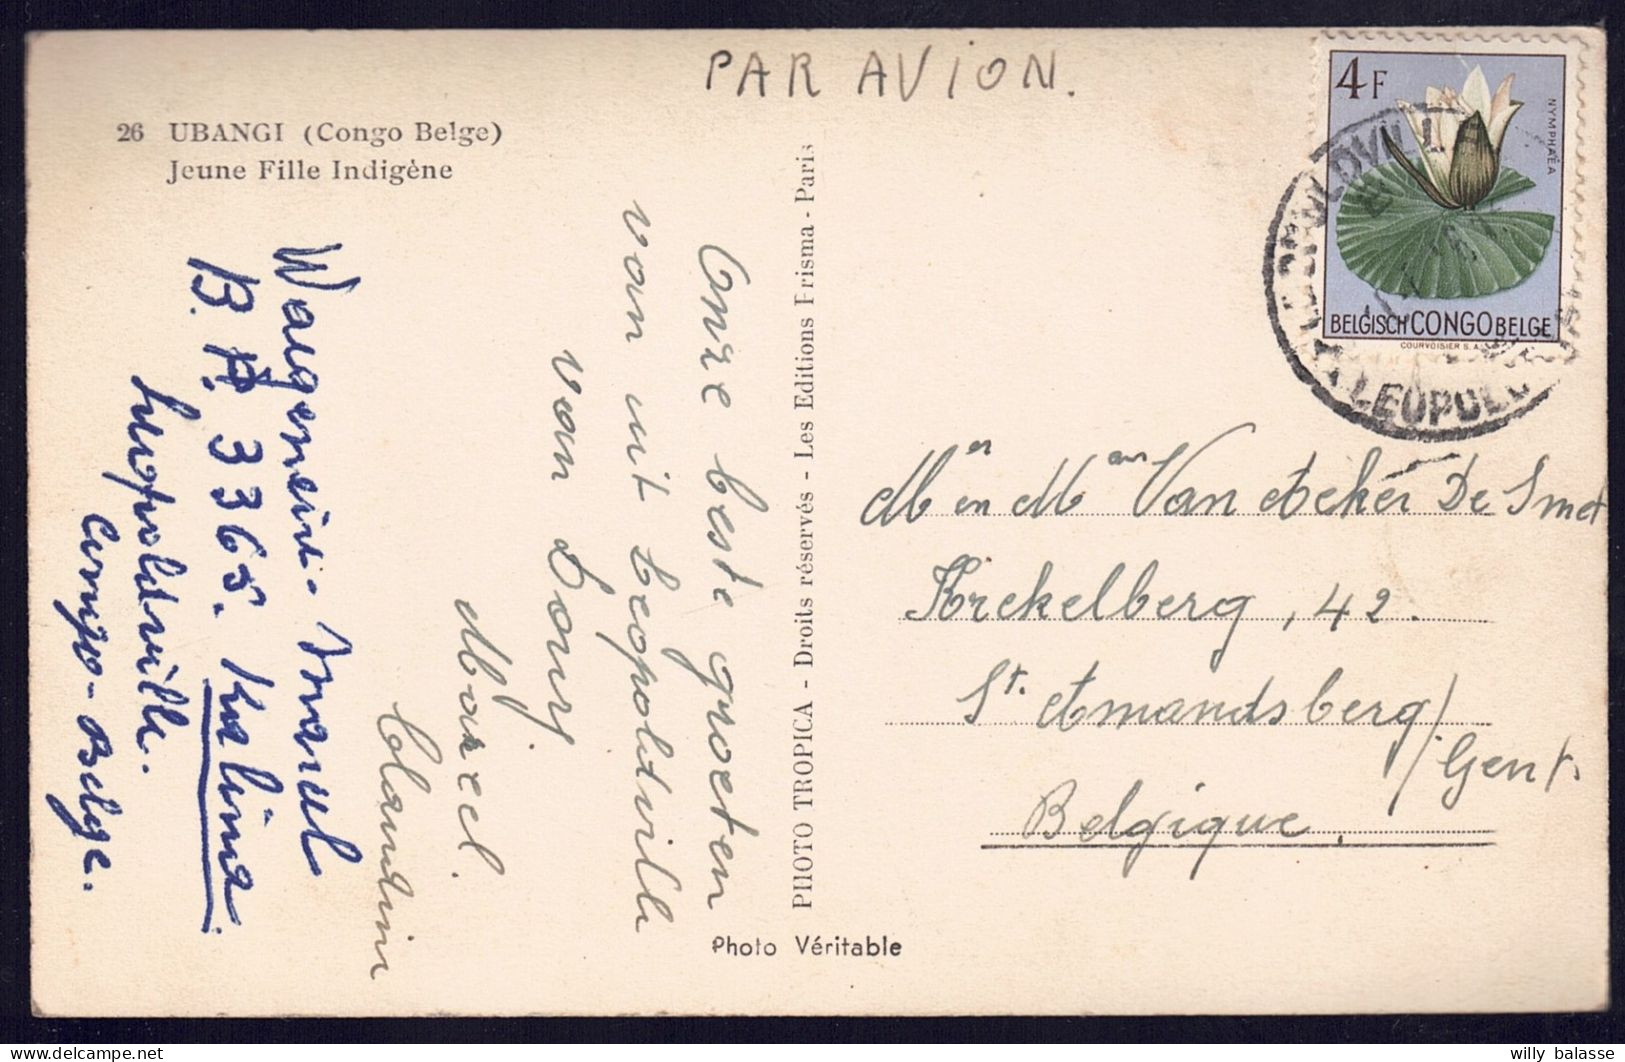 PAR AVION.
26 UBANGI (Congo Belge)
Jeune Fille Indigène
4F
NYMPHAEA
BELGISCH CONGO BELGE
COURVOISIER S.A.
LEOPOLDVILLE
LEOPOLD
Onze beste groeten
van uit Leopoldville
van Lony
Marcel
Claudine
Marcel
B.P. 3365. Kalina
Leopoldville.
Congo-Belge.
PHOTO TROPICA - Droits réservés - Les Editions Prisma - Paris
Photo Véritable
Mr en Mme Van Acker De Smet
Krekelberg, 42.
St. Amandsberg/
Gent
Belgique.
willy balasse